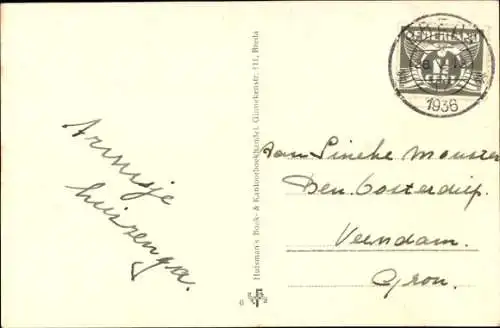 Armtje
huizenga.
Huisman's Boek- & Kantoorboekhandel, Ginnekenstr. 111, Breda
BREDA
1936
NEDERLAND
aan Lineke Mounter
Ben. Oosterdiep.
Veendam.
Gron.